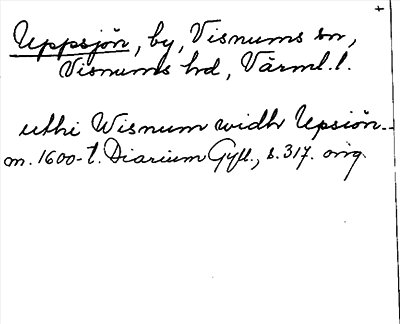 +
Uppsjön, by, Visnums sn,
Visnums hd, Värml. l.
uthi Wisnum widh Upsiön.
m. 1600-t. Diarium Gyll., s. 317. orig.